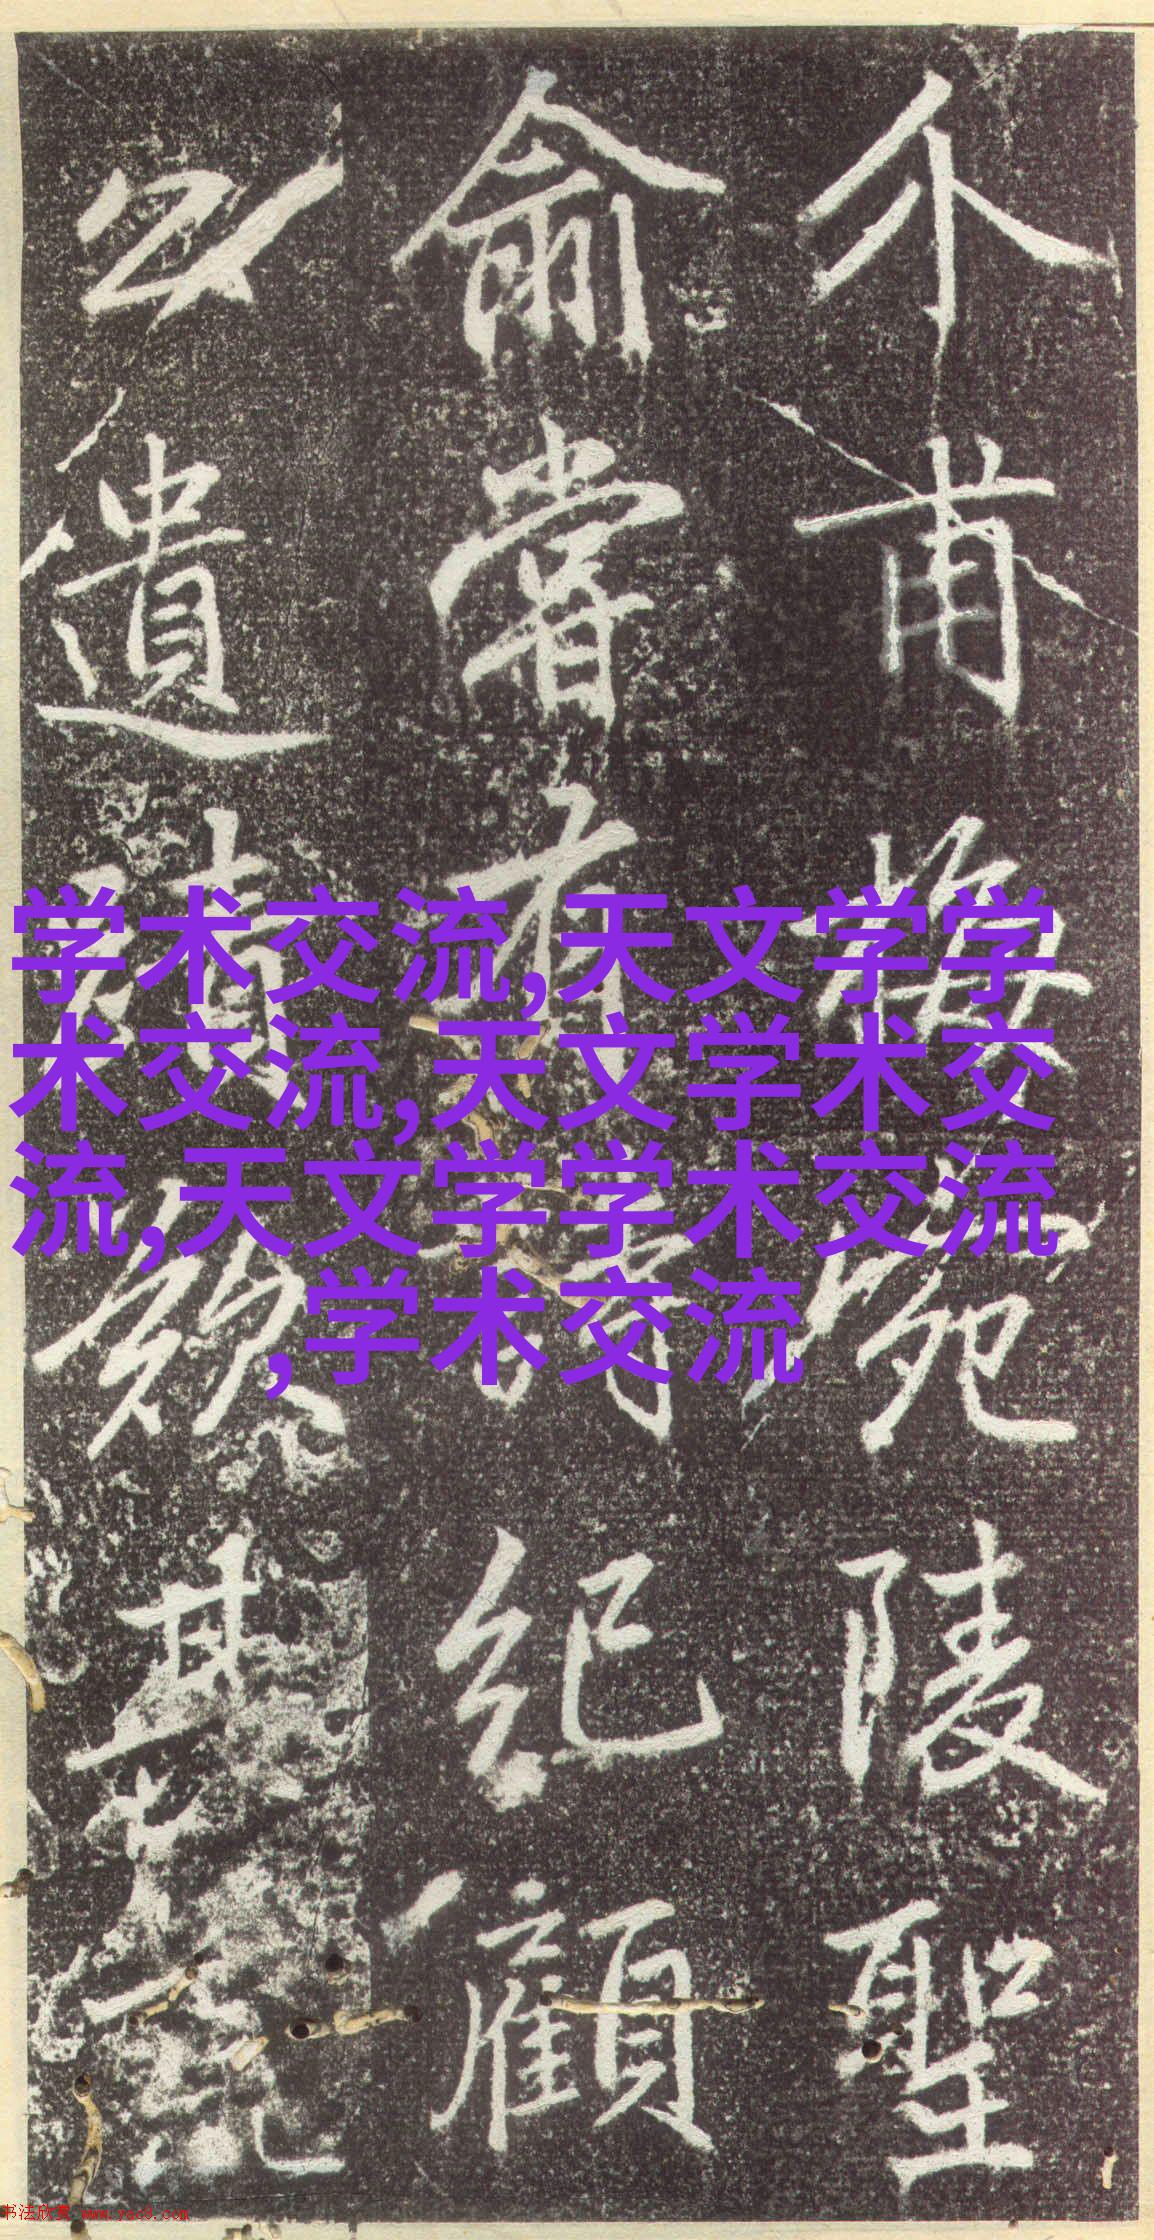 介甫梅宛陵聖
俞嘗有詩紀顧
公遺蹟
学术交流,天文学学
术交流,天文学术交
流,天文学学术交流
,学术交流
书法欣赏 www.yac8.com